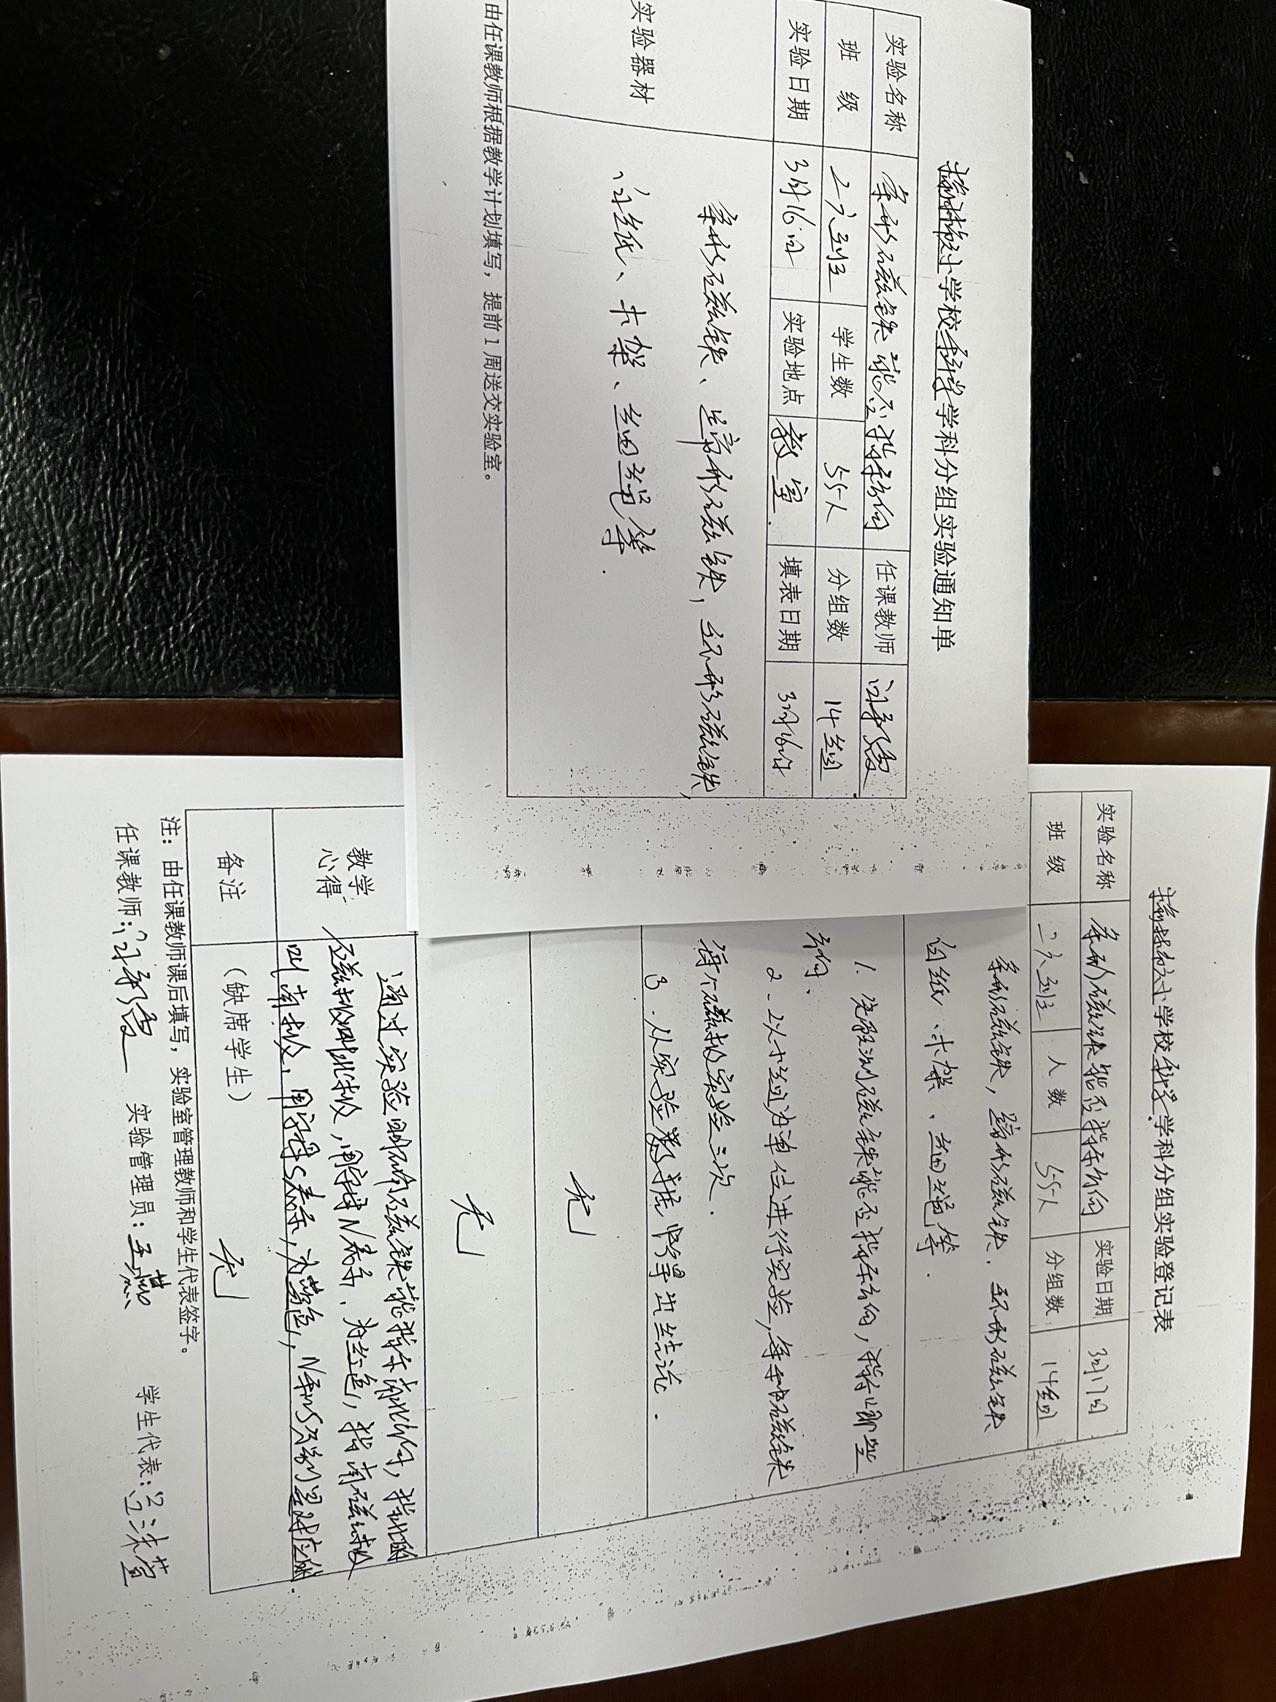 小学校科学学科分组实验通知单
实验名称 条形磁铁能否指示方向 任课教师
班 级 二六班 学生数 55人 分组数 14组
实验日期 3月16日 实验地点 教室 填表日期 3月16日
实验器材
条形磁铁、蹄形磁铁，环形磁铁，
白纸、卡架、细绳等.
由任课教师根据教学计划填写，提前1周送交实验室。
小学校科学学科分组实验登记表
实验名称 条形磁铁能否指示方向 实验日期 3月17日
班 级 二六班 人 数 55人 分组数 14组
条形磁铁，蹄形磁铁、环形磁铁
白纸、卡架、细绳等.
1. 先预测磁铁能否指示方向，指示哪些
方向、
2、以小组为单位进行实验，每条磁铁
每个磁极实验三次.
3. 从实验数据归纳出结论.
无
无
教学心得
通过实验明确磁铁能指示南北方向，指北的
磁极叫北极，用字母N表示、为红色，指南磁极
叫南极，用字母S表示，为蓝色，N和S分别是对应的.
备注 （缺席学生） 无
注：由任课教师课后填写，实验室管理教师和学生代表签字。
任课教师： 实验管理员：王燕 学生代表：